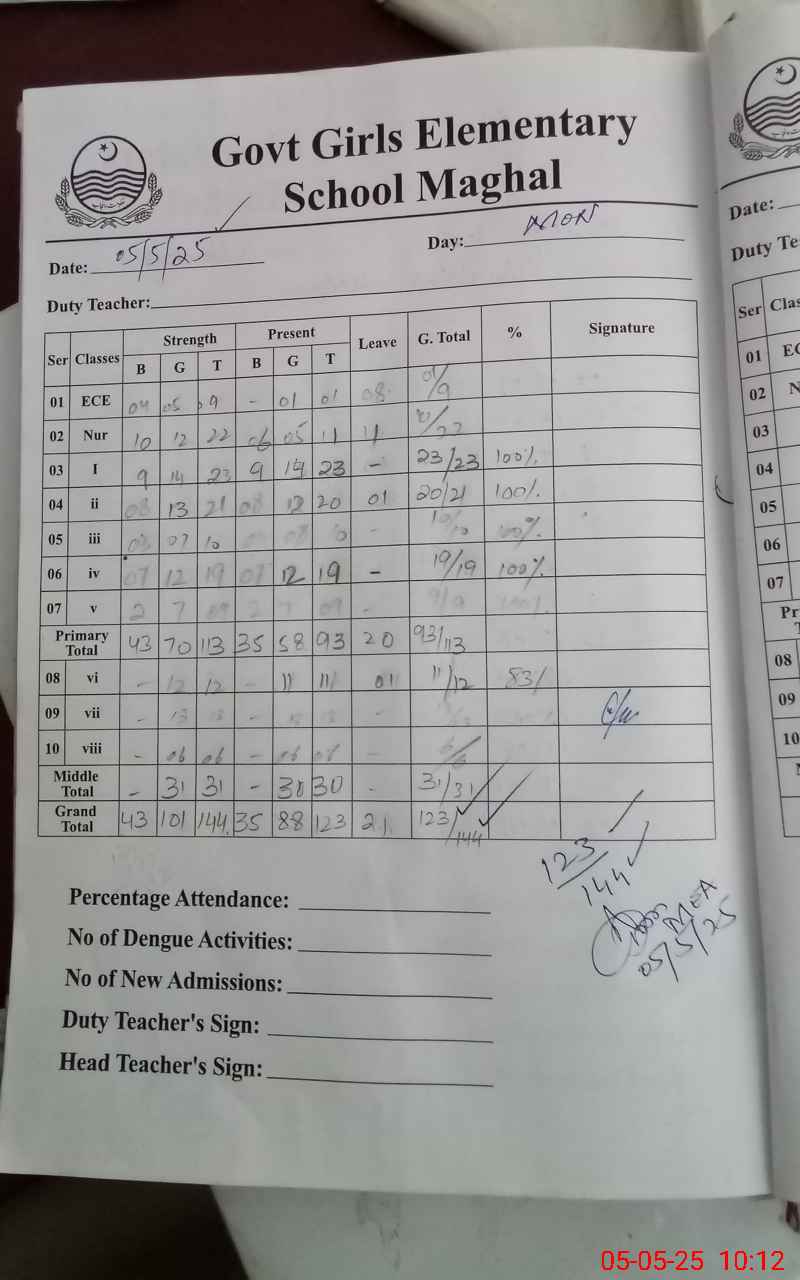 Govt Girls Elementary
School Maghal
Date: 05/5/25 Day: MON
Duty Teacher:
Ser Classes Strength Present Leave G. Total % Signature
B G T B G T
01 ECE 04 05 09 - 01 01 08 01/9
02 Nur 10 12 22 06 05 11 11 /22
03 I 9 14 23 9 14 23 - 23/23 100%
04 ii 08 13 21 08 12 20 01 20/21 100%
05 iii 03 07 10 - 10/10 100%
06 iv 07 12 19 07 12 19 - 19/19 100%
07 v 2 7 09 2 7 09 - 9/9 100%
Primary Total 43 70 113 35 58 93 20 93/113
08 vi - 12 12 - 11 11 01 11/12 83%
09 vii - 13 13 - 13 13 -
10 viii - 06 06 - 06 06 - 6/6
Middle Total - 31 31 - 30 30 - 31/31
Grand Total 43 101 144 35 88 123 21 123/144
123/144
MEA
05/5/25
Percentage Attendance:
No of Dengue Activities:
No of New Admissions:
Duty Teacher's Sign:
Head Teacher's Sign:
Date:
Duty Te
Ser Clas
01 EC
02 N
03
04
05
06
07
Pr
T
08
09
10
05-05-25 10:12